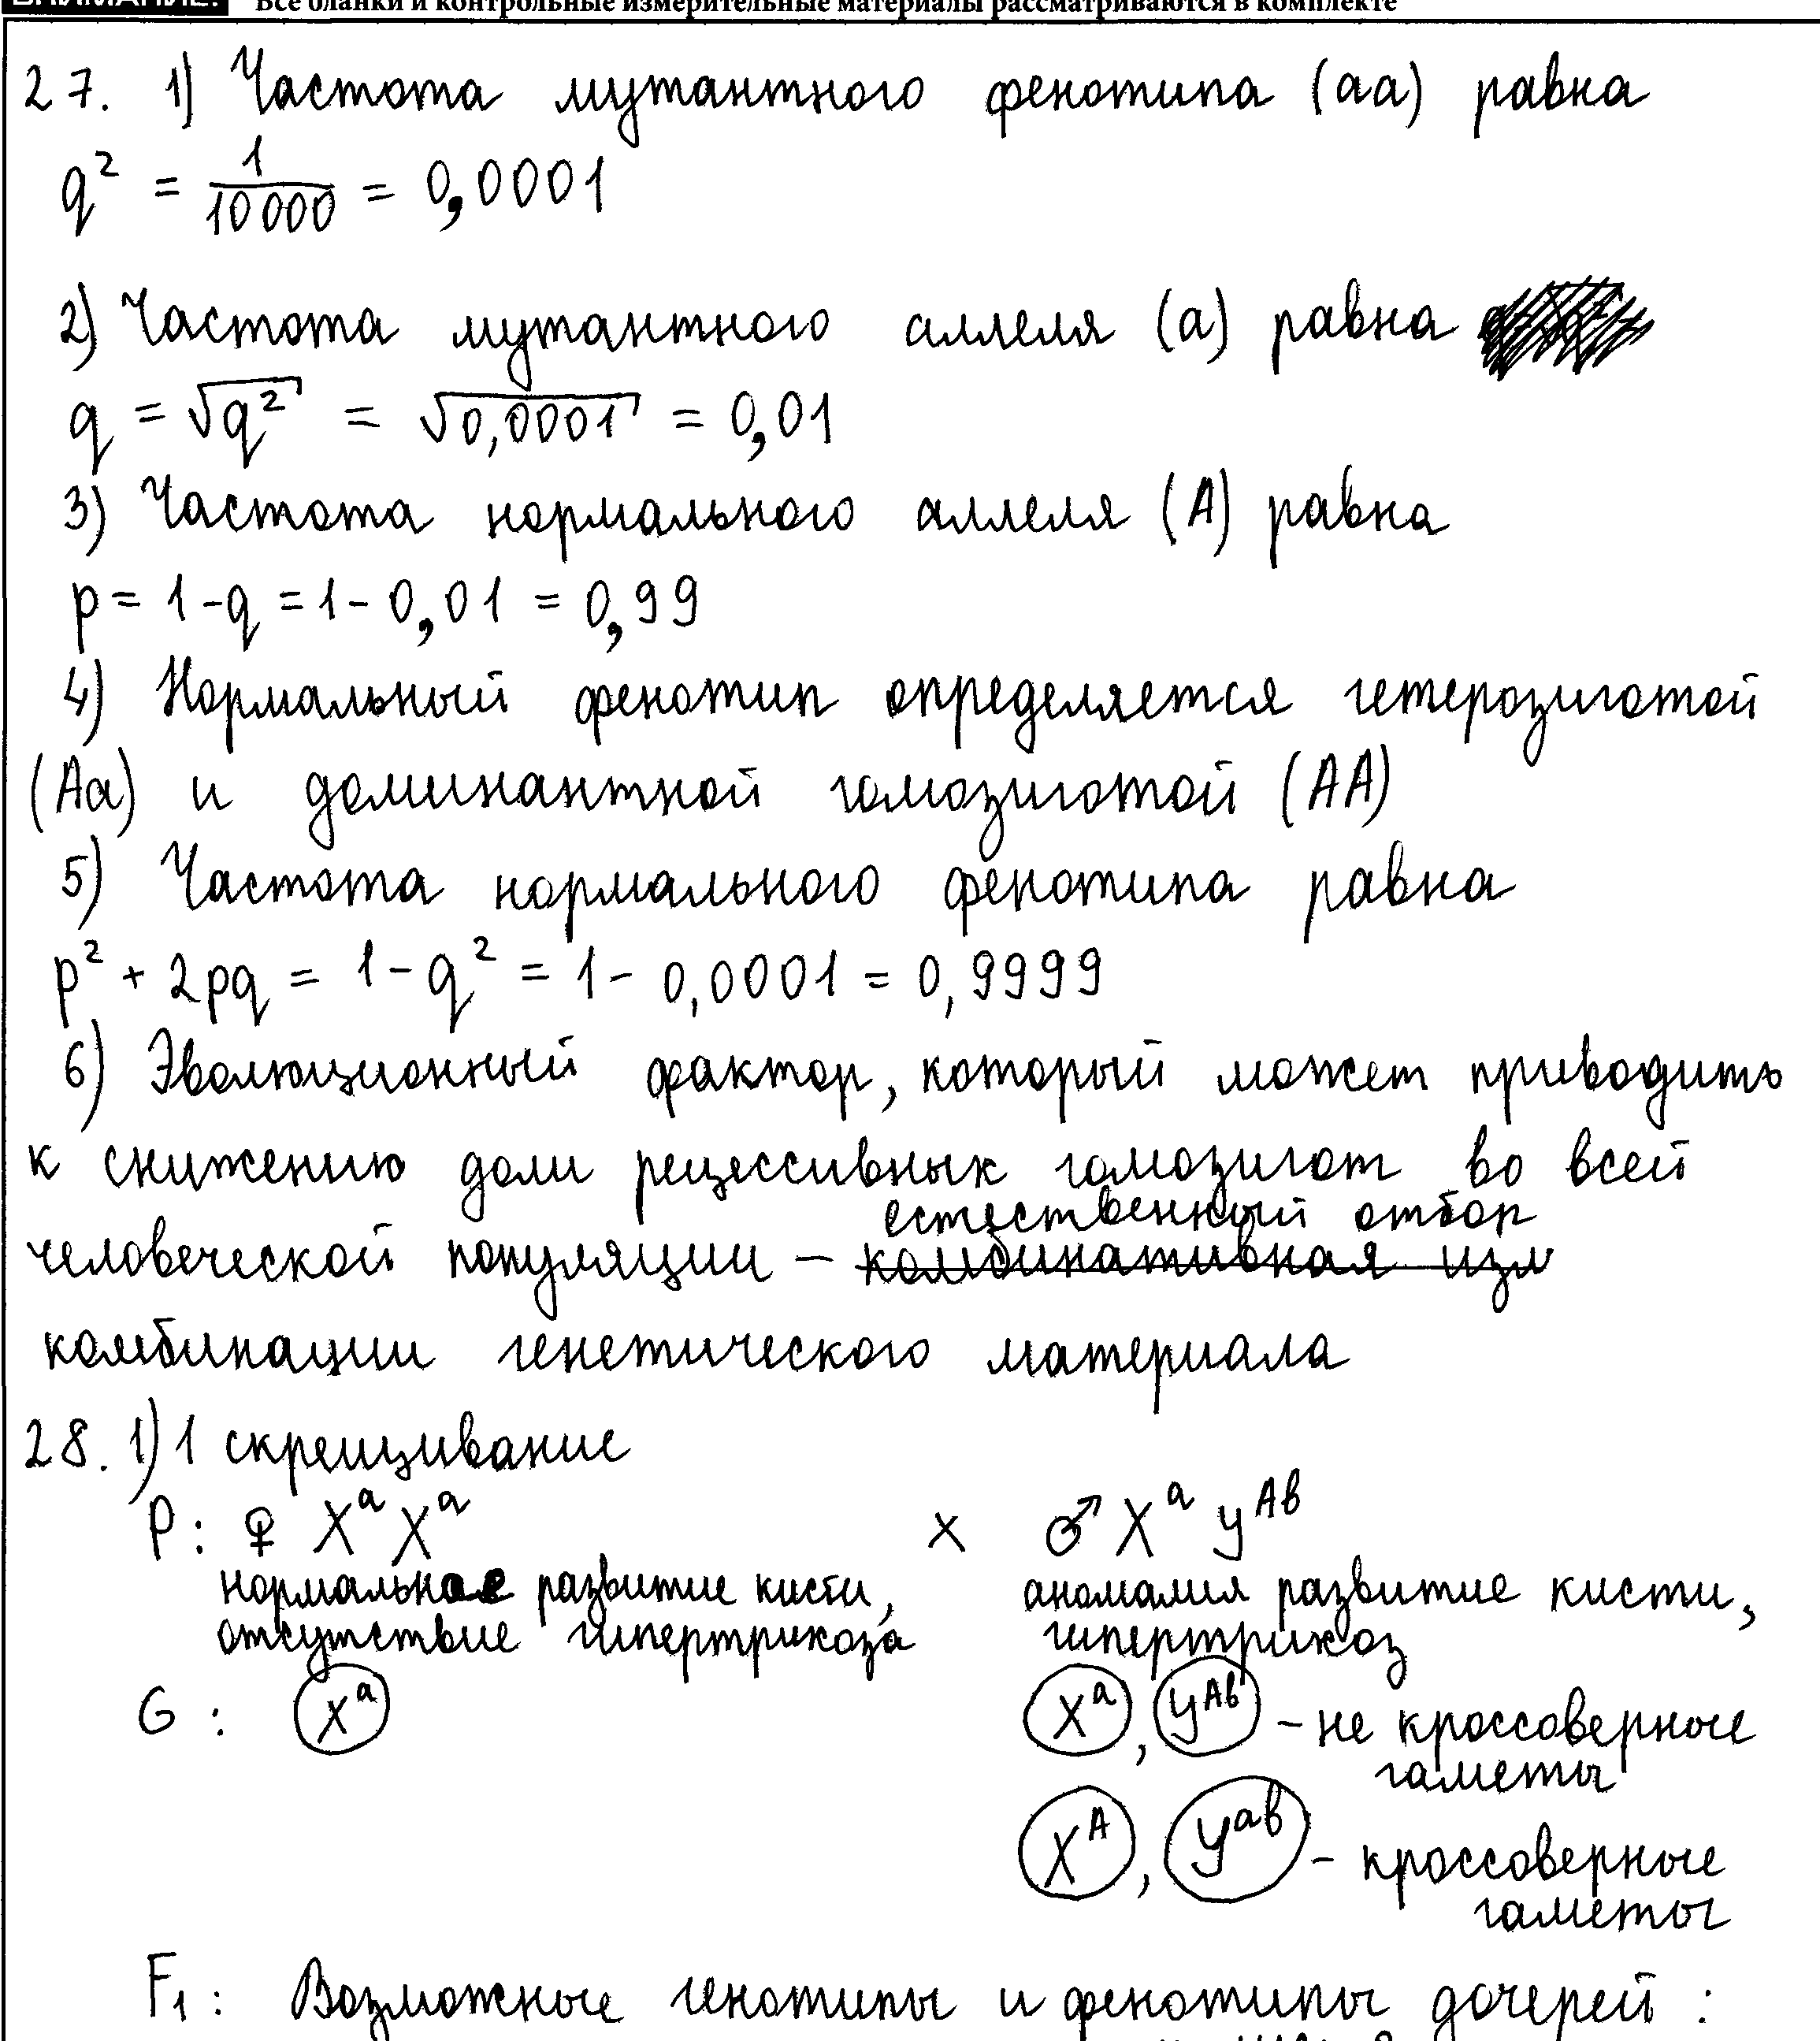 ВНИМАНИЕ! Все бланки и контрольные измерительные материалы рассматриваются в комплекте
27. 1) Частота мутантного фенотипа (аа) равна
q² = 1/10000 = 0,0001
2) Частота мутантного аллеля (а) равна
q = √q² = √0,0001 = 0,01
3) Частота нормального аллеля (А) равна
p = 1-q = 1- 0,01 = 0,99
4) Нормальный фенотип определяется гетерозиготой
(Аа) и доминантной гомозиготой (АА)
5) Частота нормального фенотипа равна
p² + 2pq = 1-q² = 1- 0,0001 = 0,9999
6) Эволюционный фактор, который может приводить
к снижению доли рецессивных гомозигот во всей
естественный отбор
человеческой популяции – комбинативная изм
комбинации генетического материала
28. 1) 1 скрещивание
P: ♀ XᵃXᵃ x ♂ Xᵃ Yᴬᵇ
нормальное развитие кисти, аномалия развитие кисти,
отсутствие гипертрикоза гипертрихоз
G: Xᵃ Xᵃ, Yᴬᵇ – не кроссоверные
гаметы
Xᴬ, Yᵃᵇ – кроссоверные
гаметы
F₁: Возможные генотипы и фенотипы дочерей: